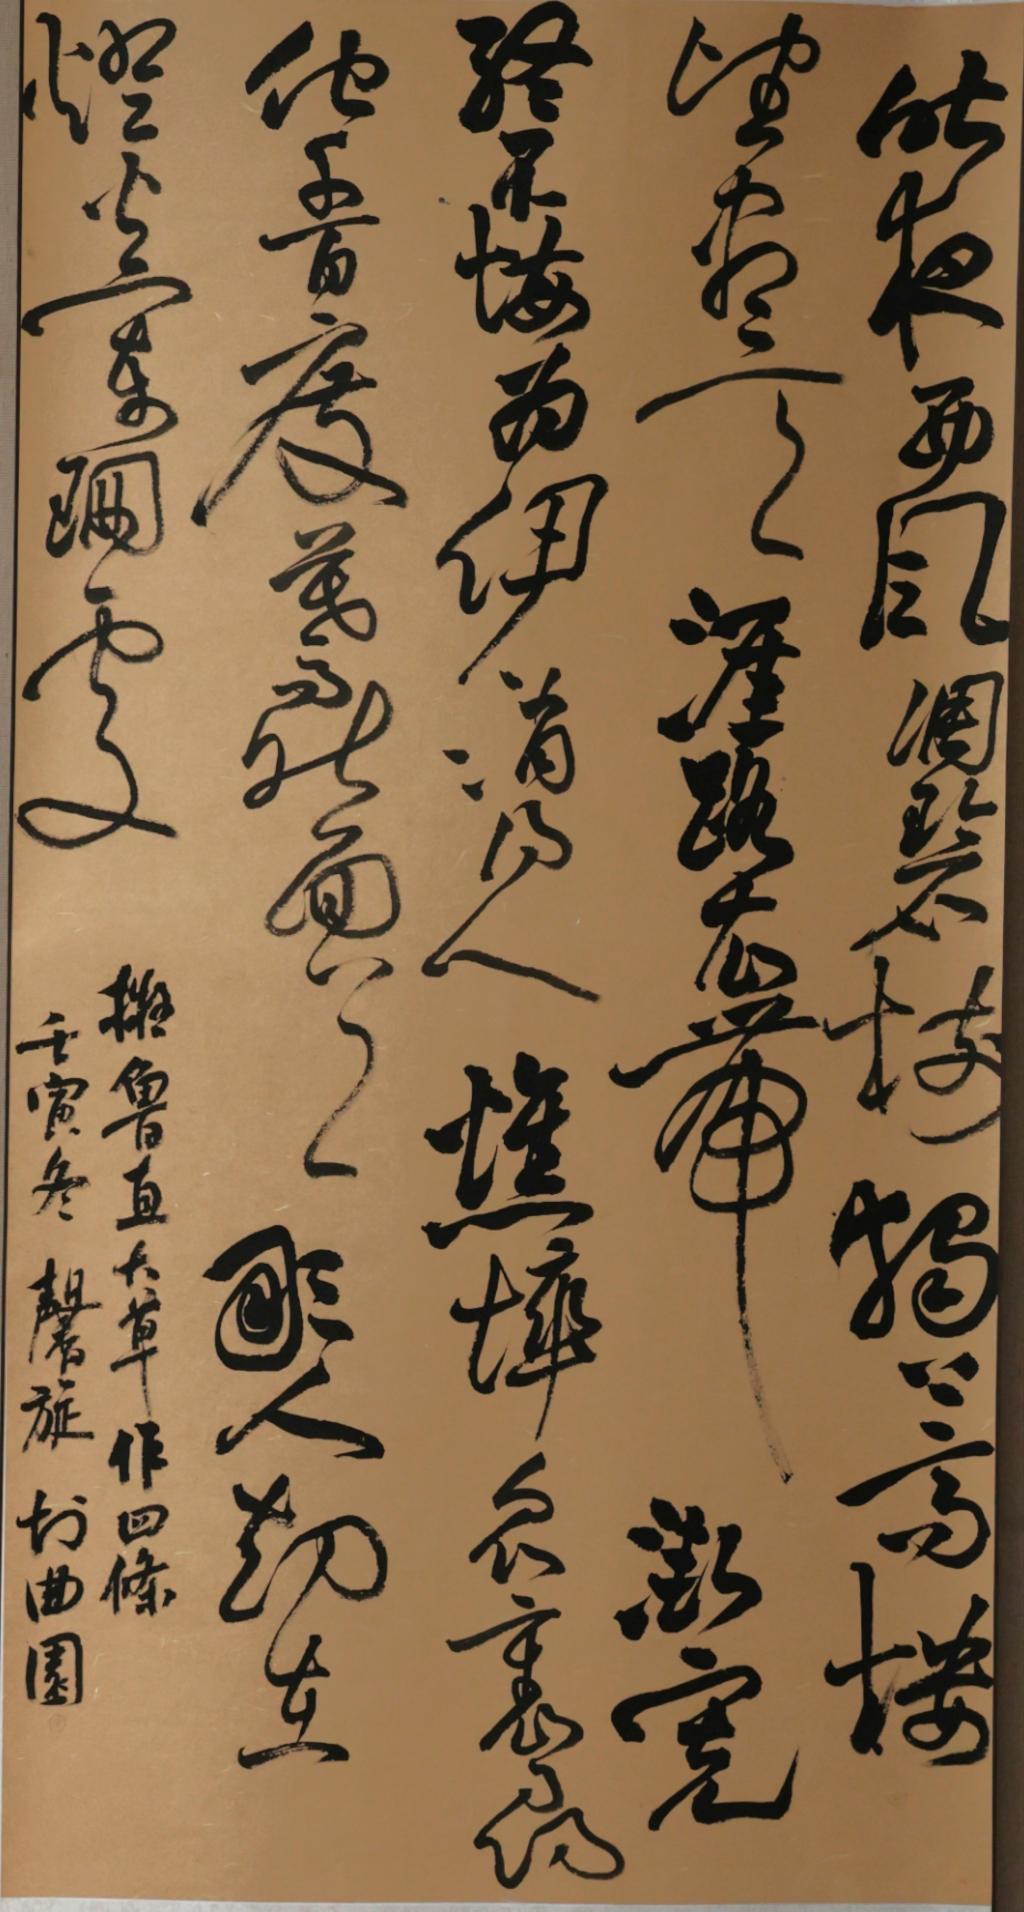 昨夜西風凋碧樹獨上高樓
望盡天涯路衣帶漸寬
終不悔為伊消得人憔悴衆裏尋
他千百度驀然回首那人卻在
燈火闌珊處
擬魯直大草作四條
壬寅冬馨旋於曲園